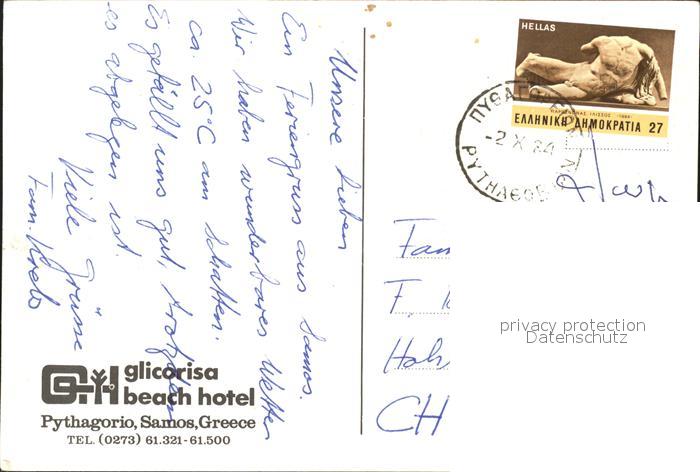 Unsere Lieben
Ein Feriengruss aus Samos.
Wir haben wunderbares Wetter
ca. 25°C am Schatten.
Es gefällt uns gut, trotzdem
es abgelegen ist.
Viele Grüsse
Fam. Krebs
glicorisa
beach hotel
Pythagorio, Samos, Greece
TEL. (0273) 61.321-61.500
HELLAS
ΠΑΡΘΕΝΩΝΑΣ ΙΛΙΣΣΟΣ 1984
ΕΛΛΗΝΙΚΗ ΔΗΜΟΚΡΑΤΙΑ 27
-2 X 84
Fam
F.
Hoh
CH
privacy protection
Datenschutz